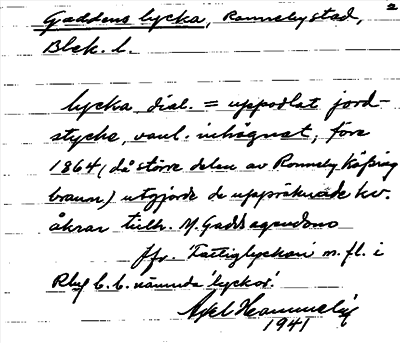 2
Gaddens lycka, Ronneby stad,
Blek. l.
lycka, dial. = uppodlat jord-
stycke, vanl. inhägnat; före
1864 (då större delen av Ronneby Köping
brann) utgjorde de uppräknade kv.
åkrar tillh. M. Gadds egendom
Jfr. 'Fattiglyckan' m. fl. i
Rby b. b. nämnda 'lyckor'.
Axel
1941